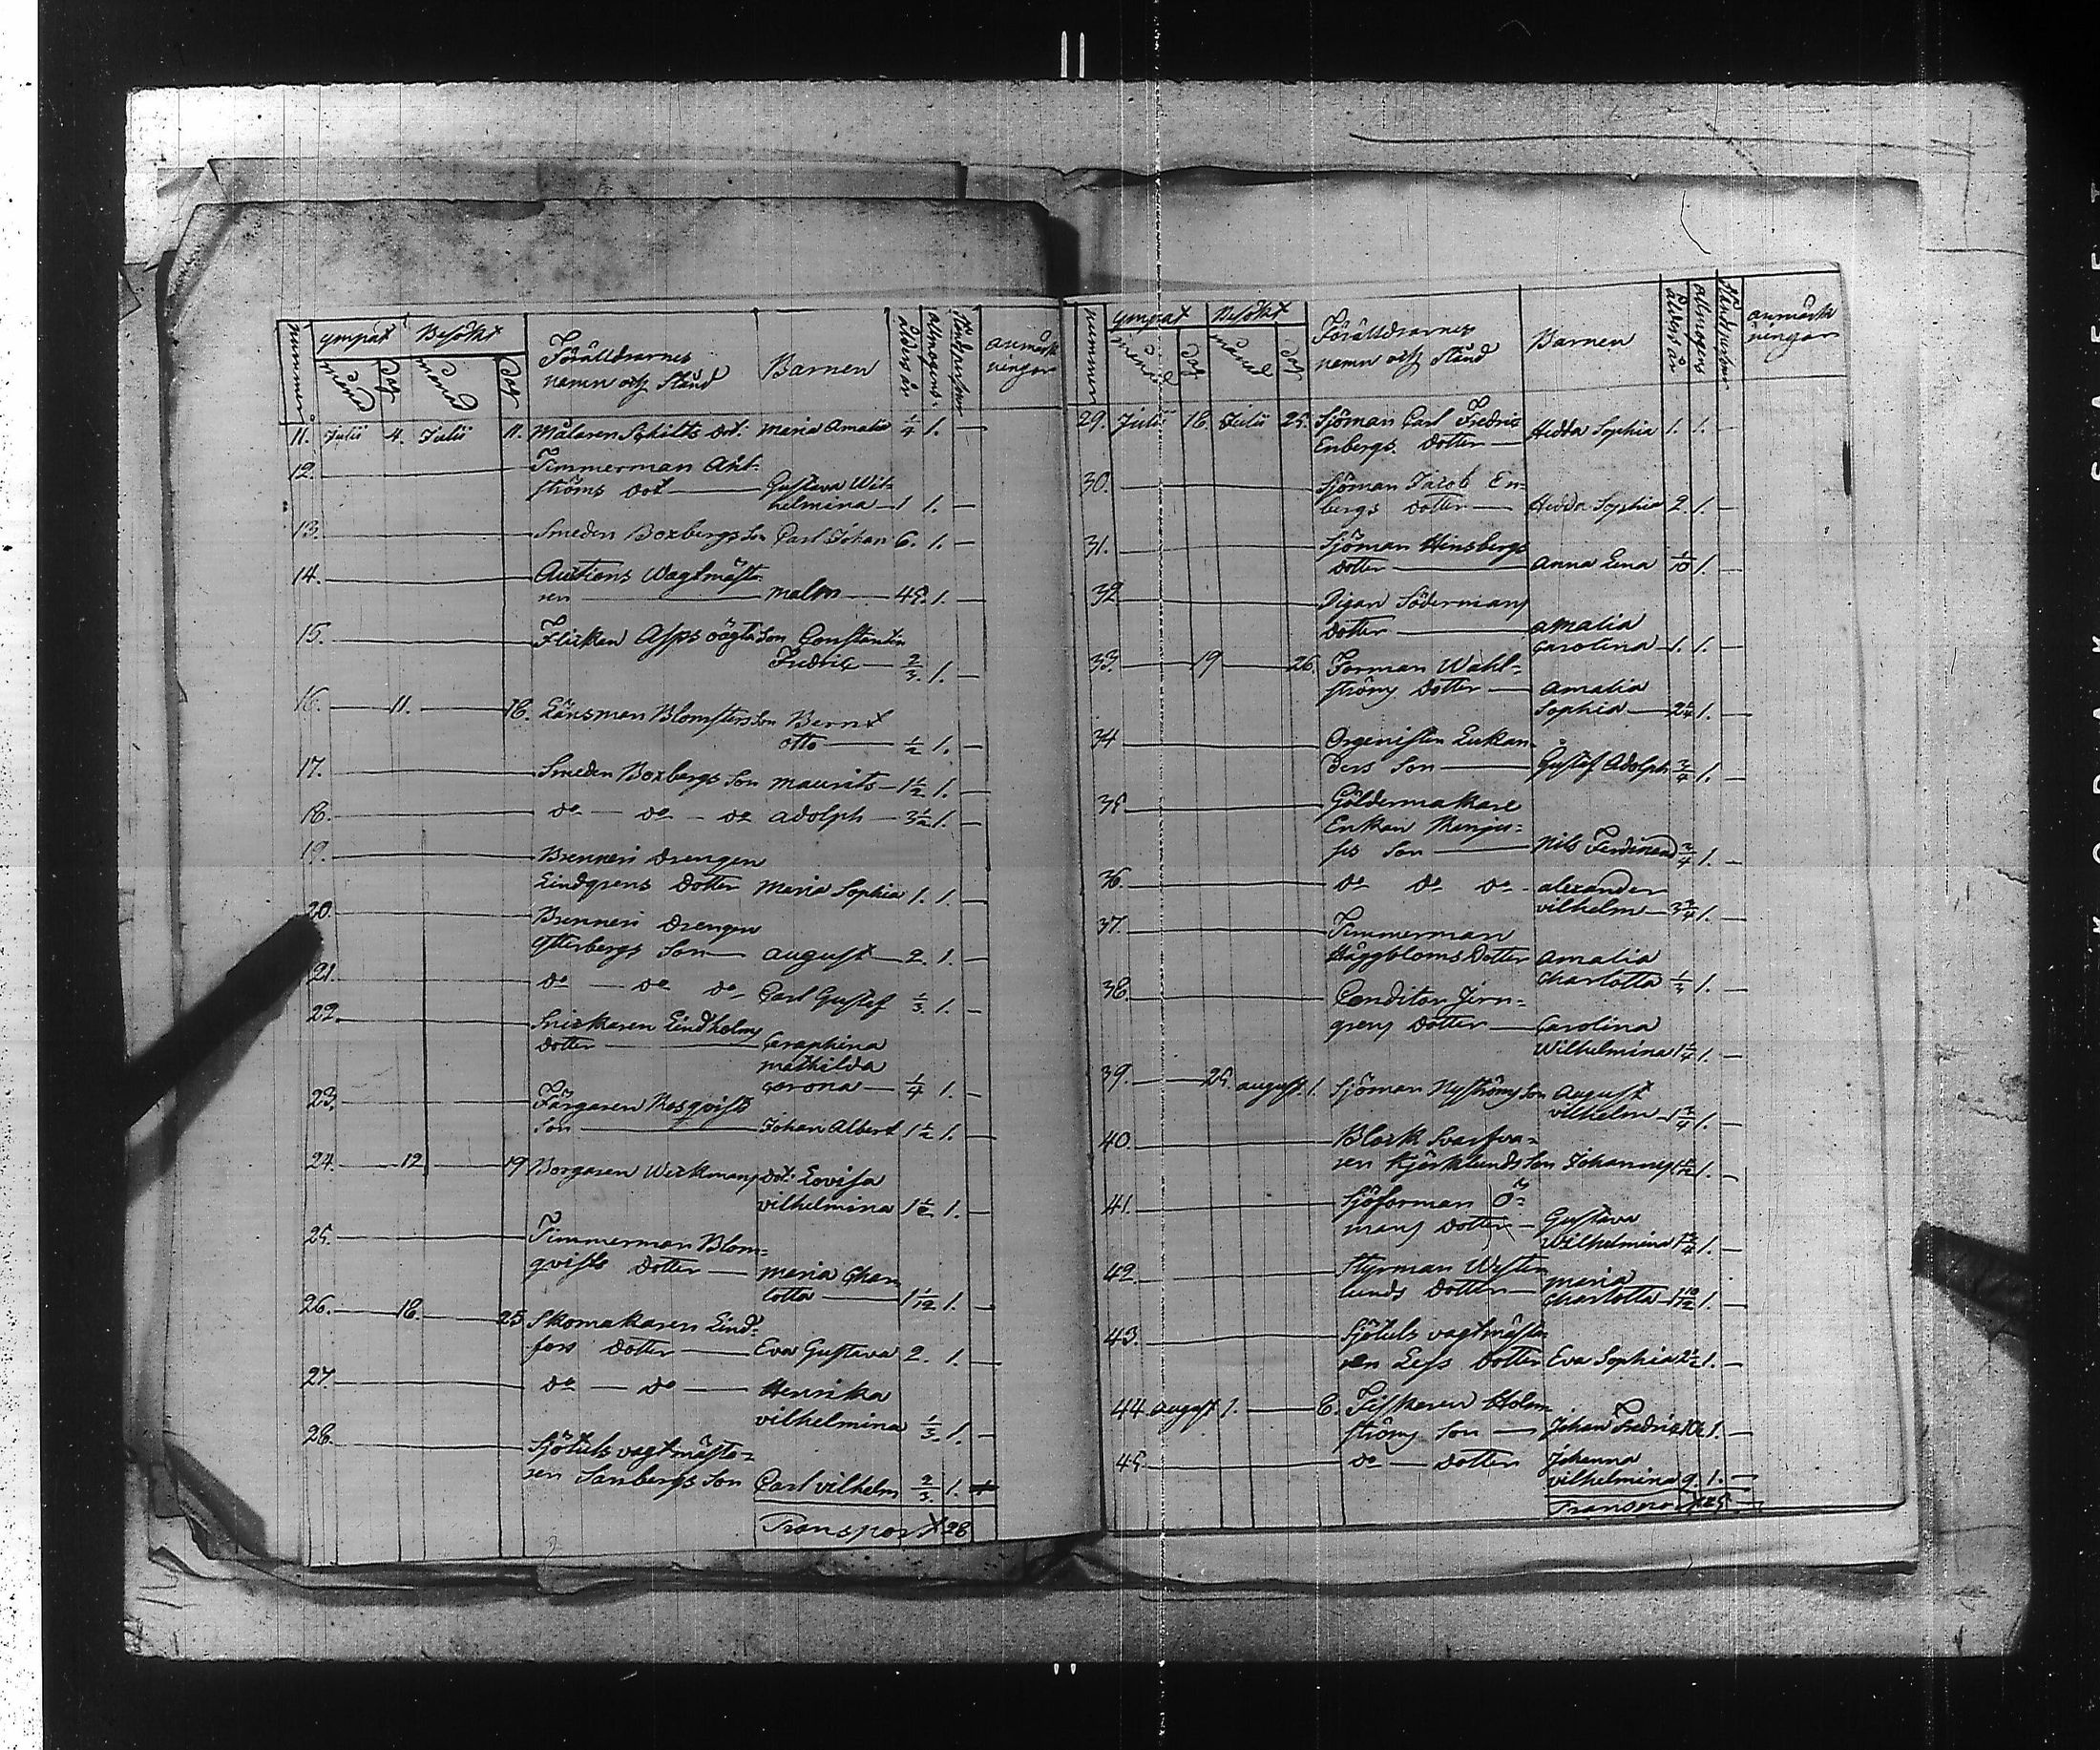 nummer ympat Besökt Förälldrarnes Barnen ålders år allmogens Ståndpersoner anmärk
månad Dag månad Dag namn och Stånd ningar
11. Julii 4. Julii 11. Målaren Schilts dot. Maria Amalia 1/4 1. —
12. Timmerman Ahl-
ströms dot — Gustava Wil-
helmina — 1 1. —
13. Smeden Boxbergs Son Carl Johan 6. 1. —
14. Auctions Wagtmäste-
ren — malm — 45. 1. —
15. Flickan Asps oägta Son Constantin
Fredric — 2/3. 1. —
16. 11. 18. Länsman Blomsters Son Bernt
otto — 1/2 1. —
17. Smeden Boxbergs Son Maurits — 1 1/2 1. —
18. do — do — do adolph — 3 1/2 1. —
19. Brenneri drengen
Lindgrens dotter Maria Sophia 1. 1. —
20. Brenneri drengen
Österbergs Son — august — 2. 1. —
21. do — do do Carl Gustaf 1/3 1. —
22. Snickaren Lindholms
dotter — Ceraphina
mathilda
corona — 1/4 1. —
23. Färgaren Rosqvists
Son — Johan Albert 1 1/2 1. —
24. 12 19 Borgaren Weckmans dot. Lovisa
vilhelmina 1 1/2 1. —
25. Timmerman Blom-
qvists dotter — maria Char-
lotta — 1 1/12 1. —
26. 18. 25 Skomakaren Lind-
fors dotter — Eva Gustava 2. 1. —
27. do — do — Henrika
vilhelmina 1/3. 1. —
28. Sjötuls vagtmäste-
ren Sanbergs Son Carl vilhelm 2/3. 1.
Transport 28
nummer ympat Besökt Förälldrarnes Barnen ålders år allmogens Ståndpersoner anmärk
månad Dag månad Dag namn och Stånd ningar
29. Julii 18. Julii 25. Sjöman Carl Fredric
Enbergs dotter — Hedda Sophia 1. 1. —
30. Sjöman Jacob En-
bergs dotter — Hedda Sophia 2. 1. —
31. Sjöman Hinsbergs
dotter — Anna Lena 1/10 1. —
32 Pigan Södermans
dotter — amalia
Carolina 1. 1. —
33. 19 26. Forman Wahl-
ströms dotter — Amalia
Sophia — 2 1/4 1. —
34 Orgenisten Lukan-
ders Son — Gustaf Adolph 3/4 1. —
35 Göldermakare
Enkan
Son — Nils Ferdinand 3/4 1. —
36. do do do - alexander
vilhelm — 3 3/4 1. —
37. Timmerman
Häggbloms Dotter Amalia
Charlotta 1/3 1. —
38. Conditor Jern-
grens dotter — Carolina
Wilhelmina 1 1/4 1. —
39. 25. august. 1. Sjöman Nyströms Son August
vilhelm — 1 3/4 1. —
40. Block Svarfva-
ren Björklunds Son Johannes 1. —
41. Sjöforman Ö-
mans dotter — Gustava
Wilhelmina 1 3/4 1. —
42. Styrman Wester-
lunds dotter — maria
Charlotta — 1 10/12 1. —
43. Sjötuls vagtmäste-
ren Leps dotter Eva Sophia 2 1/2 1. —
44. august 1. 8. Fiskaren Holm-
ströms Son — Johan Fredric 10 1/2 1. —
45. do — dotter Johanna
vilhelmina 9. 1. —
Transport 45 —